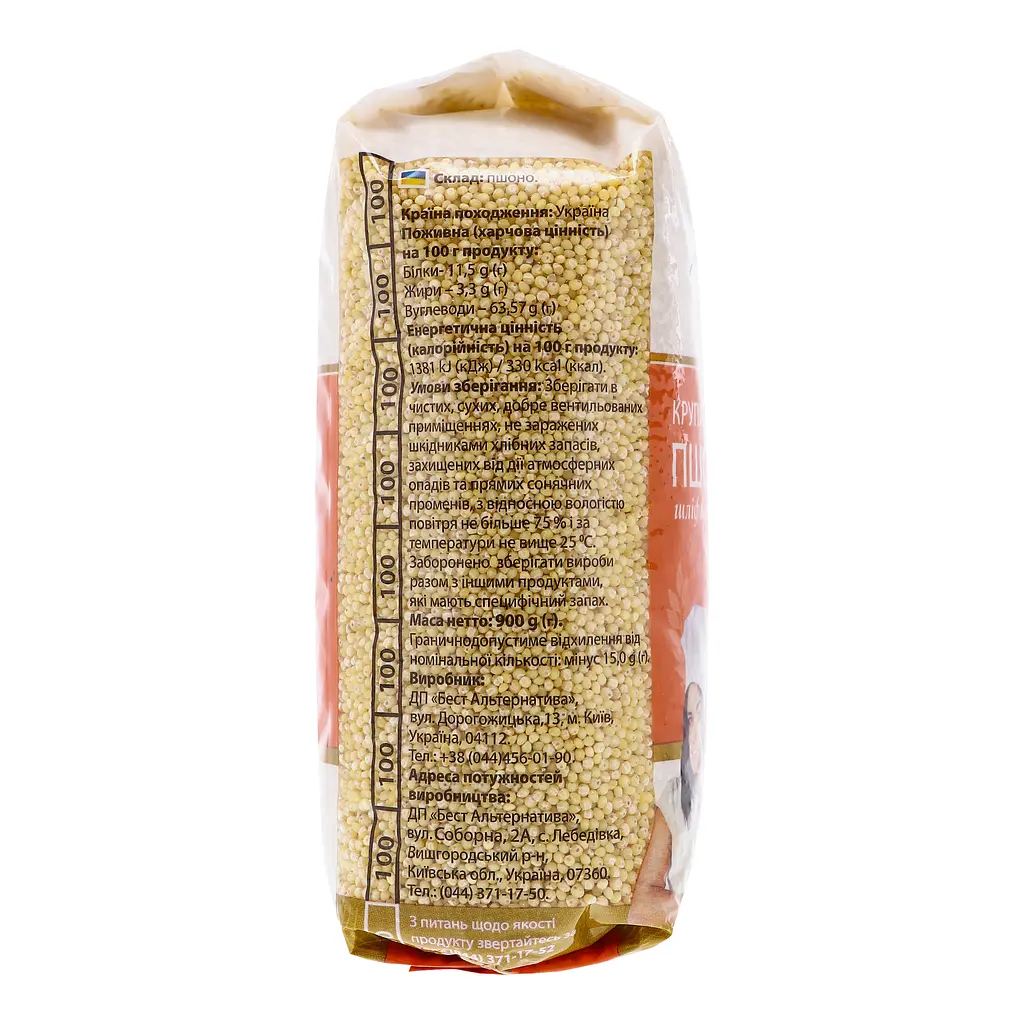 Склад: пшоно.
Країна походження: Україна
Поживна (харчова цінність)
на 100 г продукту:
Білки- 11,5 g (г)
Жири – 3,3 g (г)
Вуглеводи – 63,57 g (г)
Енергетична цінність
(калорійність) на 100 г продукту:
1381 kJ (кДж) / 330 kcal (ккал).
Умови зберігання: Зберігати в
чистих, сухих, добре вентильованих
приміщеннях, не заражених
шкідниками хлібних запасів,
захищених від дії атмосферних
опадів та прямих сонячних
променів, з відносною вологістю
повітря не більше 75 % і за
температури не вище 25 ⁰С.
Заборонено зберігати вироби
разом з іншими продуктами,
які мають специфічний запах.
Маса нетто: 900 g (г).
Граничнодопустиме відхилення від
номінальної кількості: мінус 15,0 g (г).
Виробник:
ДП «Бест Альтернатива»,
вул. Дорогожицька,13, м. Київ,
Україна, 04112.
Тел.: +38 (044)456-01-90.
Адреса потужностей
виробництва:
ДП «Бест Альтернатива»,
вул. Соборна, 2А, с. Лебедівка,
Вишгородський р-н,
Київська обл., Україна, 07360.
Тел.: (044) 371-17-50.
З питань щодо якості
продукту звертайтесь за
(044) 371-17-52
100
100
100
100
100
100
100
100